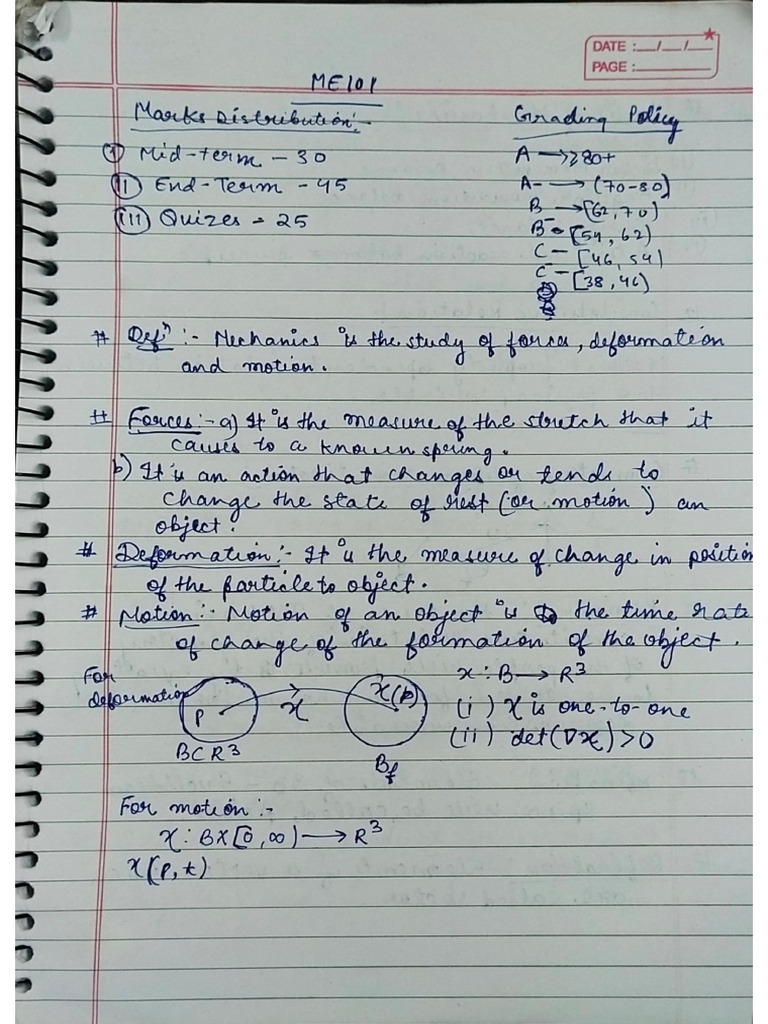 DATE :__/__/__
PAGE :
ME101
Marks Distribution:-
(i) Mid-term - 30
(ii) End-Term - 45
(iii) Quizes - 25
Grading Policy
A → ≥80+
A- → (70-80)
B → [62, 70)
B⁻ - [54, 62)
C - [46, 54)
C⁻ - [38, 46)
# Defⁿ :- Mechanics is the study of forces, deformation
and motion.
# Forces :- a) It is the measure of the stretch that it
causes to a known spring.
b) It is an action that changes or tends to
change the state of rest (or motion) an
object.
# Deformation :- It is the measure of change in position
of the particle to object.
# Motion :- Motion of an object is the time rate
of change of the formation of the object.
For
deformation
P
x
x(p)
B⊂R³
B_f
x : B → R³
(i) x is one-to-one
(ii) det(∇x) > 0
For motion :-
x : B×[0, ∞) → R³
x(p, t)